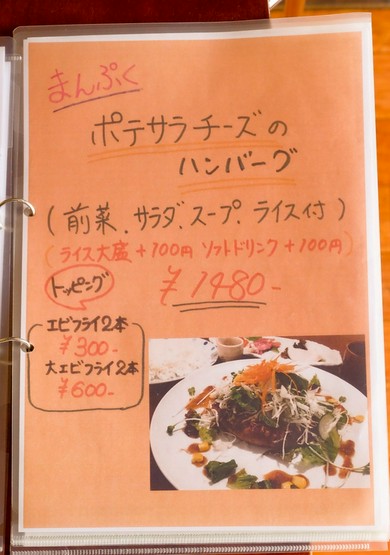 まんぷく
ポテサラチーズの
ハンバーグ
(前菜、サラダ、スープ、ライス付)
(ライス大盛+100円 ソフトドリンク+100円)
トッピング
¥1480-
エビフライ2本
¥300-
大エビフライ2本
¥600-